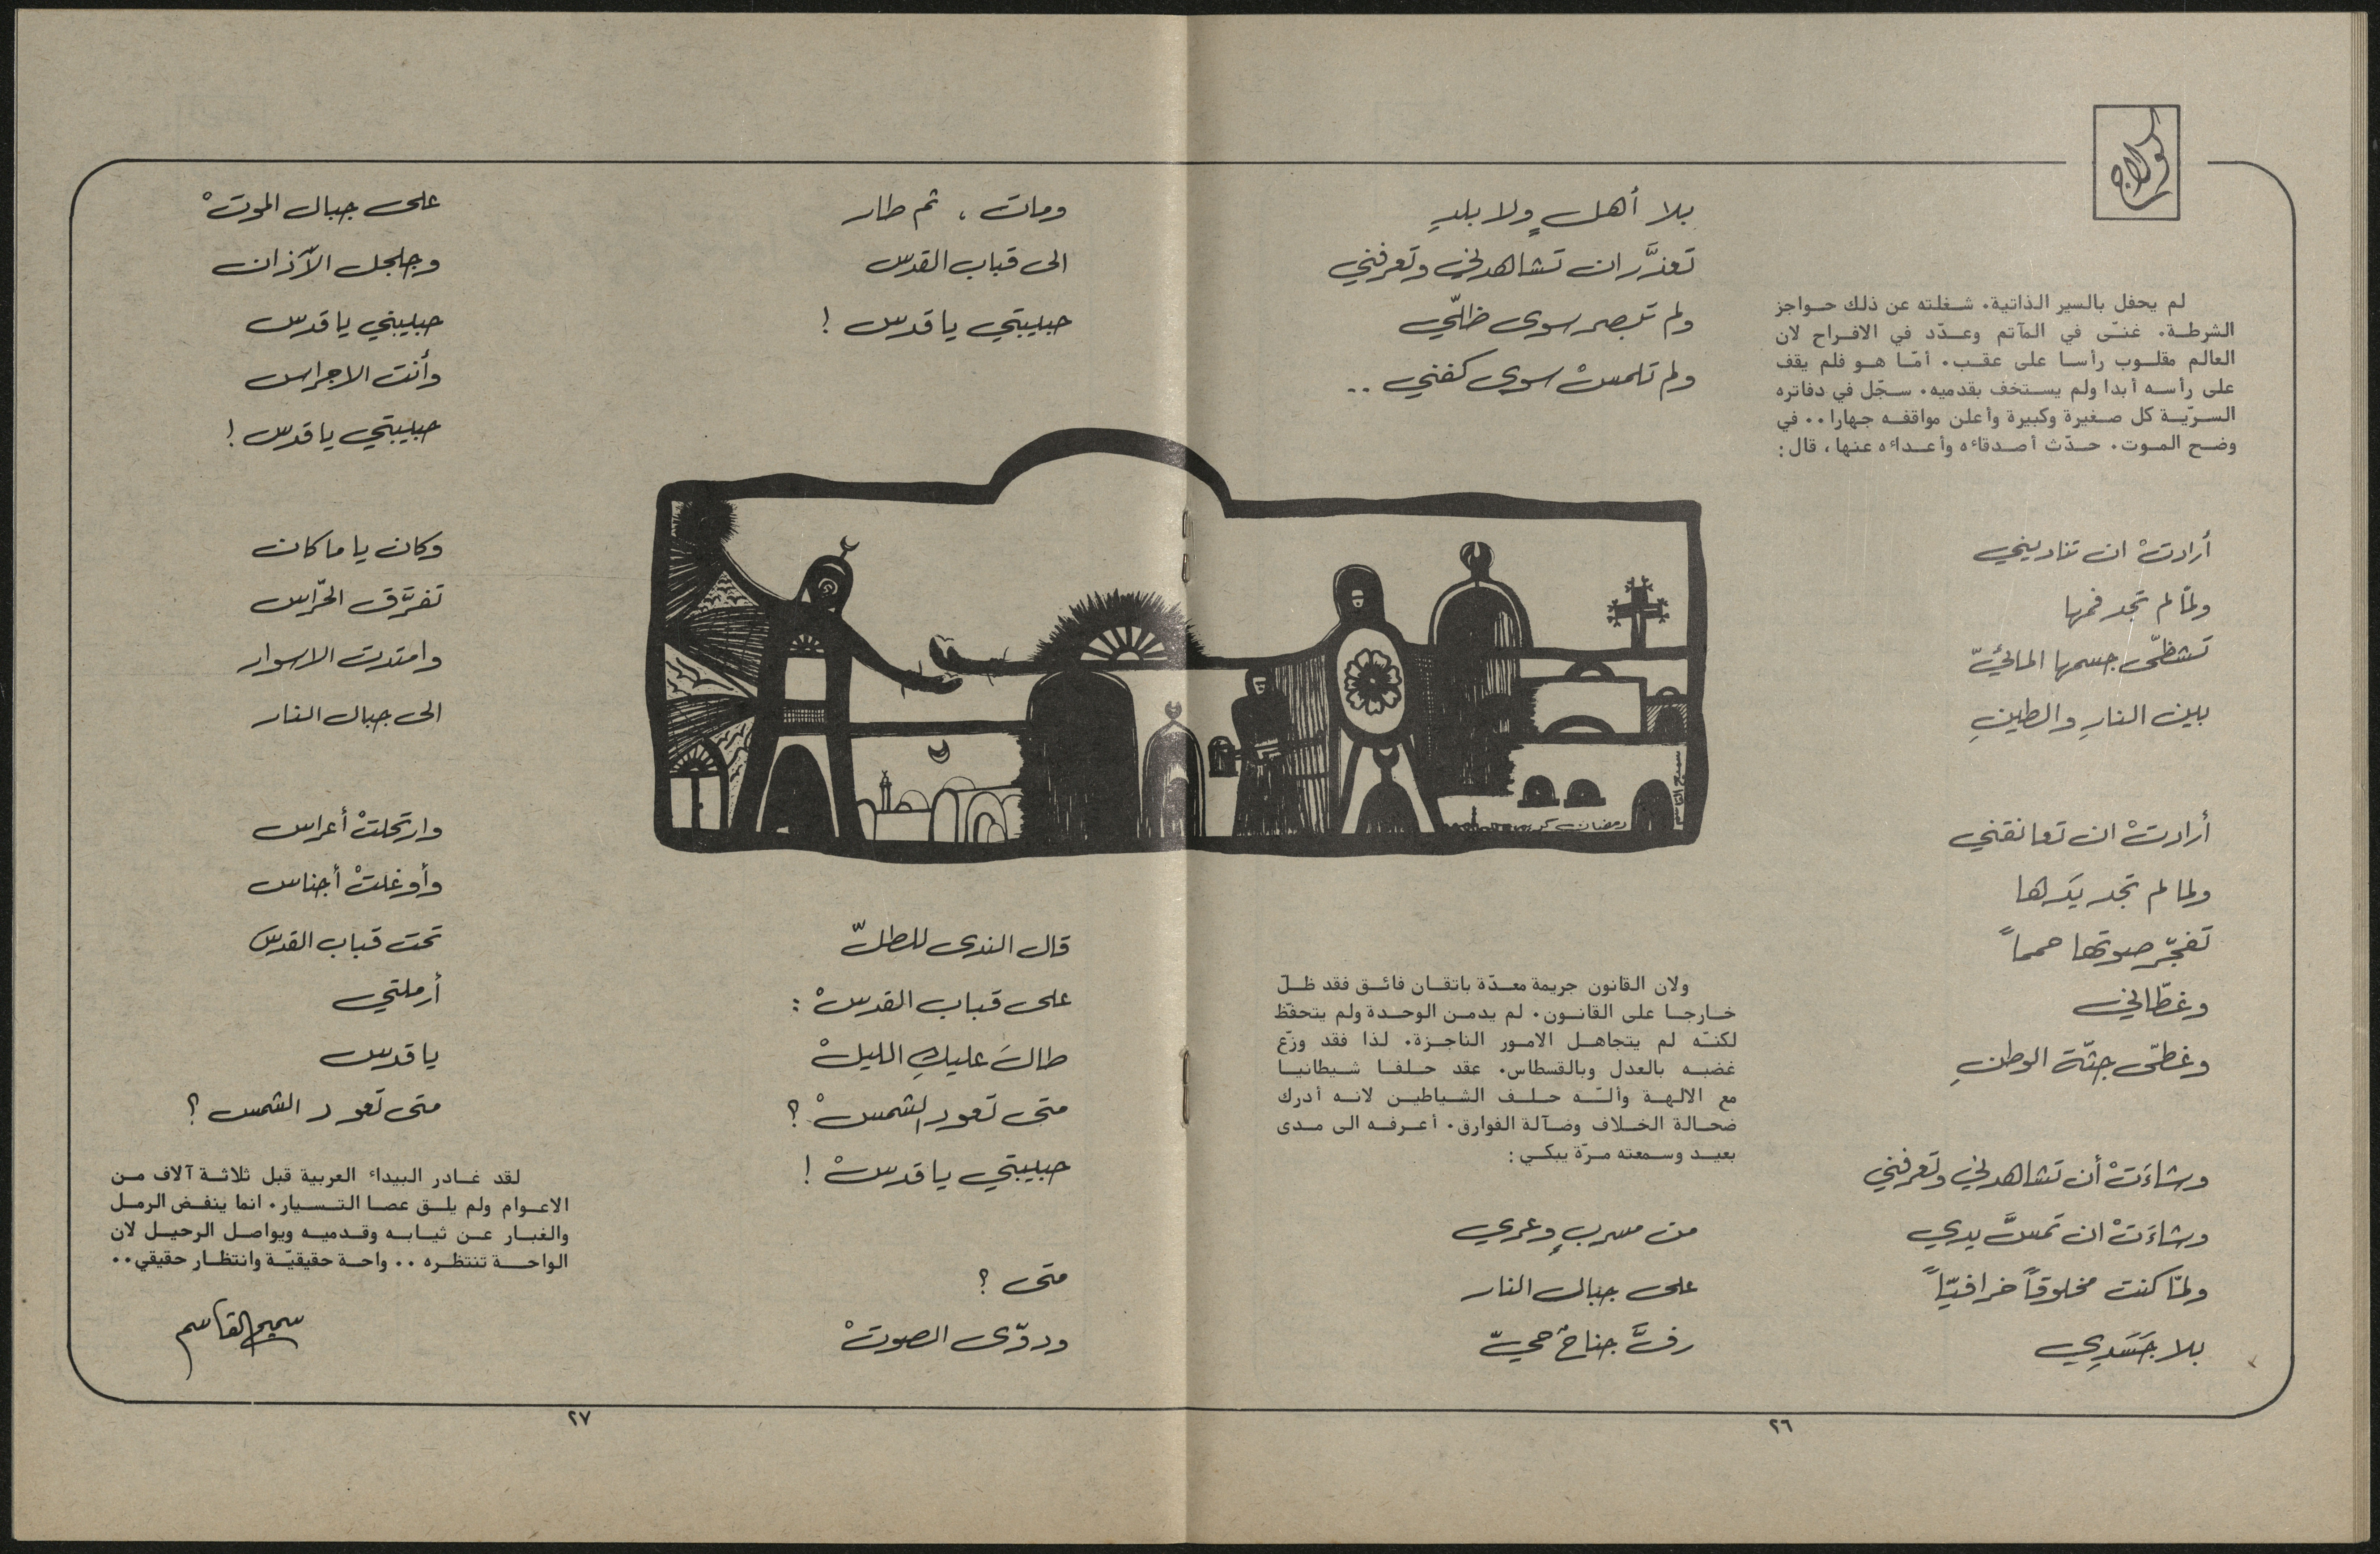 كولاج
لم يحفل بالسير الذاتية. شغلته عن ذلك حواجز
الشرطة. غنّى في المآتم وعدّد في الافراح لان
العالم مقلوب رأسا على عقب. أمّا هو فلم يقف
على رأسه أبدا ولم يستخف بقدميه. سجّل في دفاتره
السرّية كل صغيرة وكبيرة وأعلن مواقفه جهارا .. في
وضح الموت. حدّث أصدقاءه وأعداءه عنها، قال :
أرادتْ ان تناديني
ولمّا لم تجد فمها
تشظّى جسمها المائيّ
بين النارِ والطينِ
أرادتْ ان تعانقني
ولما لم تجد يَدها
تفجّر صوتها حمماً
وغطّاني
وغطّى جثّة الوطنِ
وشاءَتْ أن تشاهدني وتعرفني
وشاءَتْ ان تمسَّ يدي
ولمّا كنت مخلوقاً خرافيّاً
بلا جَسَدِي
بلا أهلٍ ولا بلدِ
تعذَّر ان تشاهدني وتعرفني
ولم تبصر سوى ظلّي
ولم تلمسْ سوى كفني ..
رمضان كريم
ولان القانون جريمة معدّة باتقان فائق فقد ظلّ
خارجا على القانون. لم يدمن الوحدة ولم يتحفّظ
لكنّه لم يتجاهل الامور الناجزة. لذا فقد وزّع
غضبه بالعدل وبالقسطاس. عقد حلفا شيطانيا
مع الالهة وألّه حلف الشياطين لانه أدرك
ضحالة الخلاف وضآلة الفوارق. أعرفه الى مدى
بعيد وسمعته مرّة يبكي :
من مسربٍ وعري
على جبال النار
رفَّ جناحٌ حيّ
٢٦
ومات ، ثم طار
الى قباب القدس
حبيبتي يا قدس !
قال الندى للطلّ
على قباب القدسْ :
طالَ عليكِ الليلْ
متى تعود الشمسْ ؟
حبيبتي يا قدسْ !
متى ؟
ودوّى الصوتْ
على جبال الموتْ
وجلجل الآذان
حبيبتي يا قدس
وأنت الاجراس
حبيبتي يا قدس !
وكان يا ما كان
تفرَّق الحرّاس
وامتدت الاسوار
الى جبال النار
وارتحلتْ أعراس
وأوغلتْ أجناس
تحت قباب القدس
أرملتي
يا قدس
متى تعود الشمس ؟
لقد غادر البيداء العربية قبل ثلاثة آلاف من
الاعوام ولم يلق عصا التسيار. انما ينفض الرمل
والغبار عن ثيابه وقدميه ويواصل الرحيل لان
الواحة تنتظره .. واحة حقيقيّة وانتظار حقيقي ..
سميح القاسم
٢٧